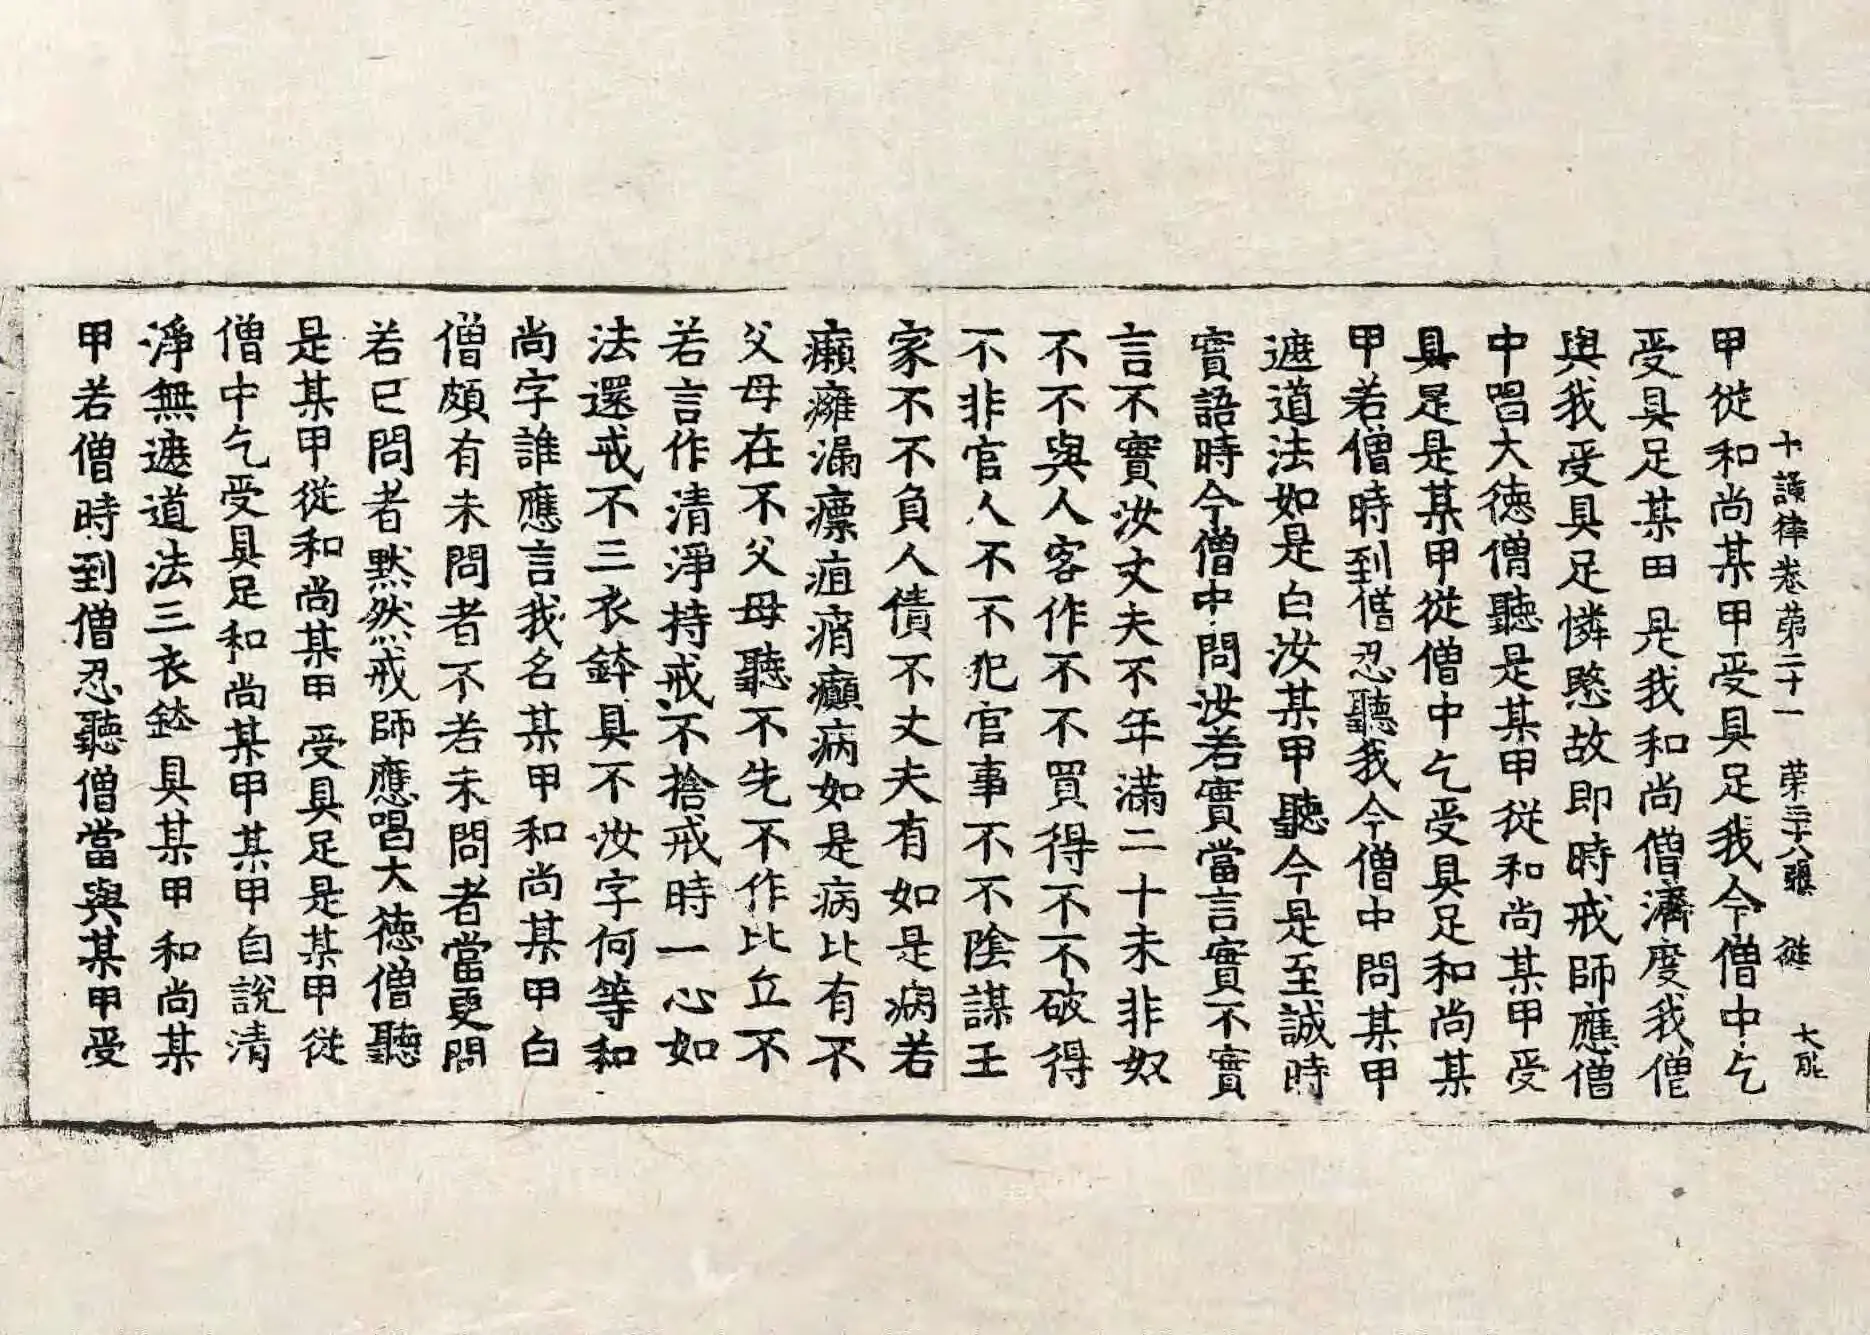 十誦律卷第二十一　第三十八張　從　大能
甲從和尚某甲受具足我今僧中乞
受具足某田是我和尚僧濟度我僧
與我受具足憐愍故即時戒師應僧
中唱大德僧聽是某甲從和尚某甲受
具足是某甲從僧中乞受具足和尚某
甲若僧時到僧忍聽我今僧中問某甲
遮道法如是白汝某甲聽今是至誠時
實語時今僧中問汝若實當言實不實
言不實汝丈夫不年滿二十未非奴
不不與人客作不不買得不不破得
不非官人不不犯官事不不陰謀王
家不不負人債不丈夫有如是病若
癩癰漏瘭疽痟癲病如是病比有不
父母在不父母聽不先不作比丘不
若言作清淨持戒不捨戒時一心如
法還戒不三衣鉢具不汝字何等和
尚字誰應言我名某甲和尚某甲白
僧頗有未問者不若未問者當更問
若已問者默然戒師應唱大德僧聽
是某甲從和尚某甲受具足是某甲從
僧中乞受具足和尚某甲某甲自說清
淨無遮道法三衣鉢具某甲和尚某
甲若僧時到僧忍聽僧當與某甲受